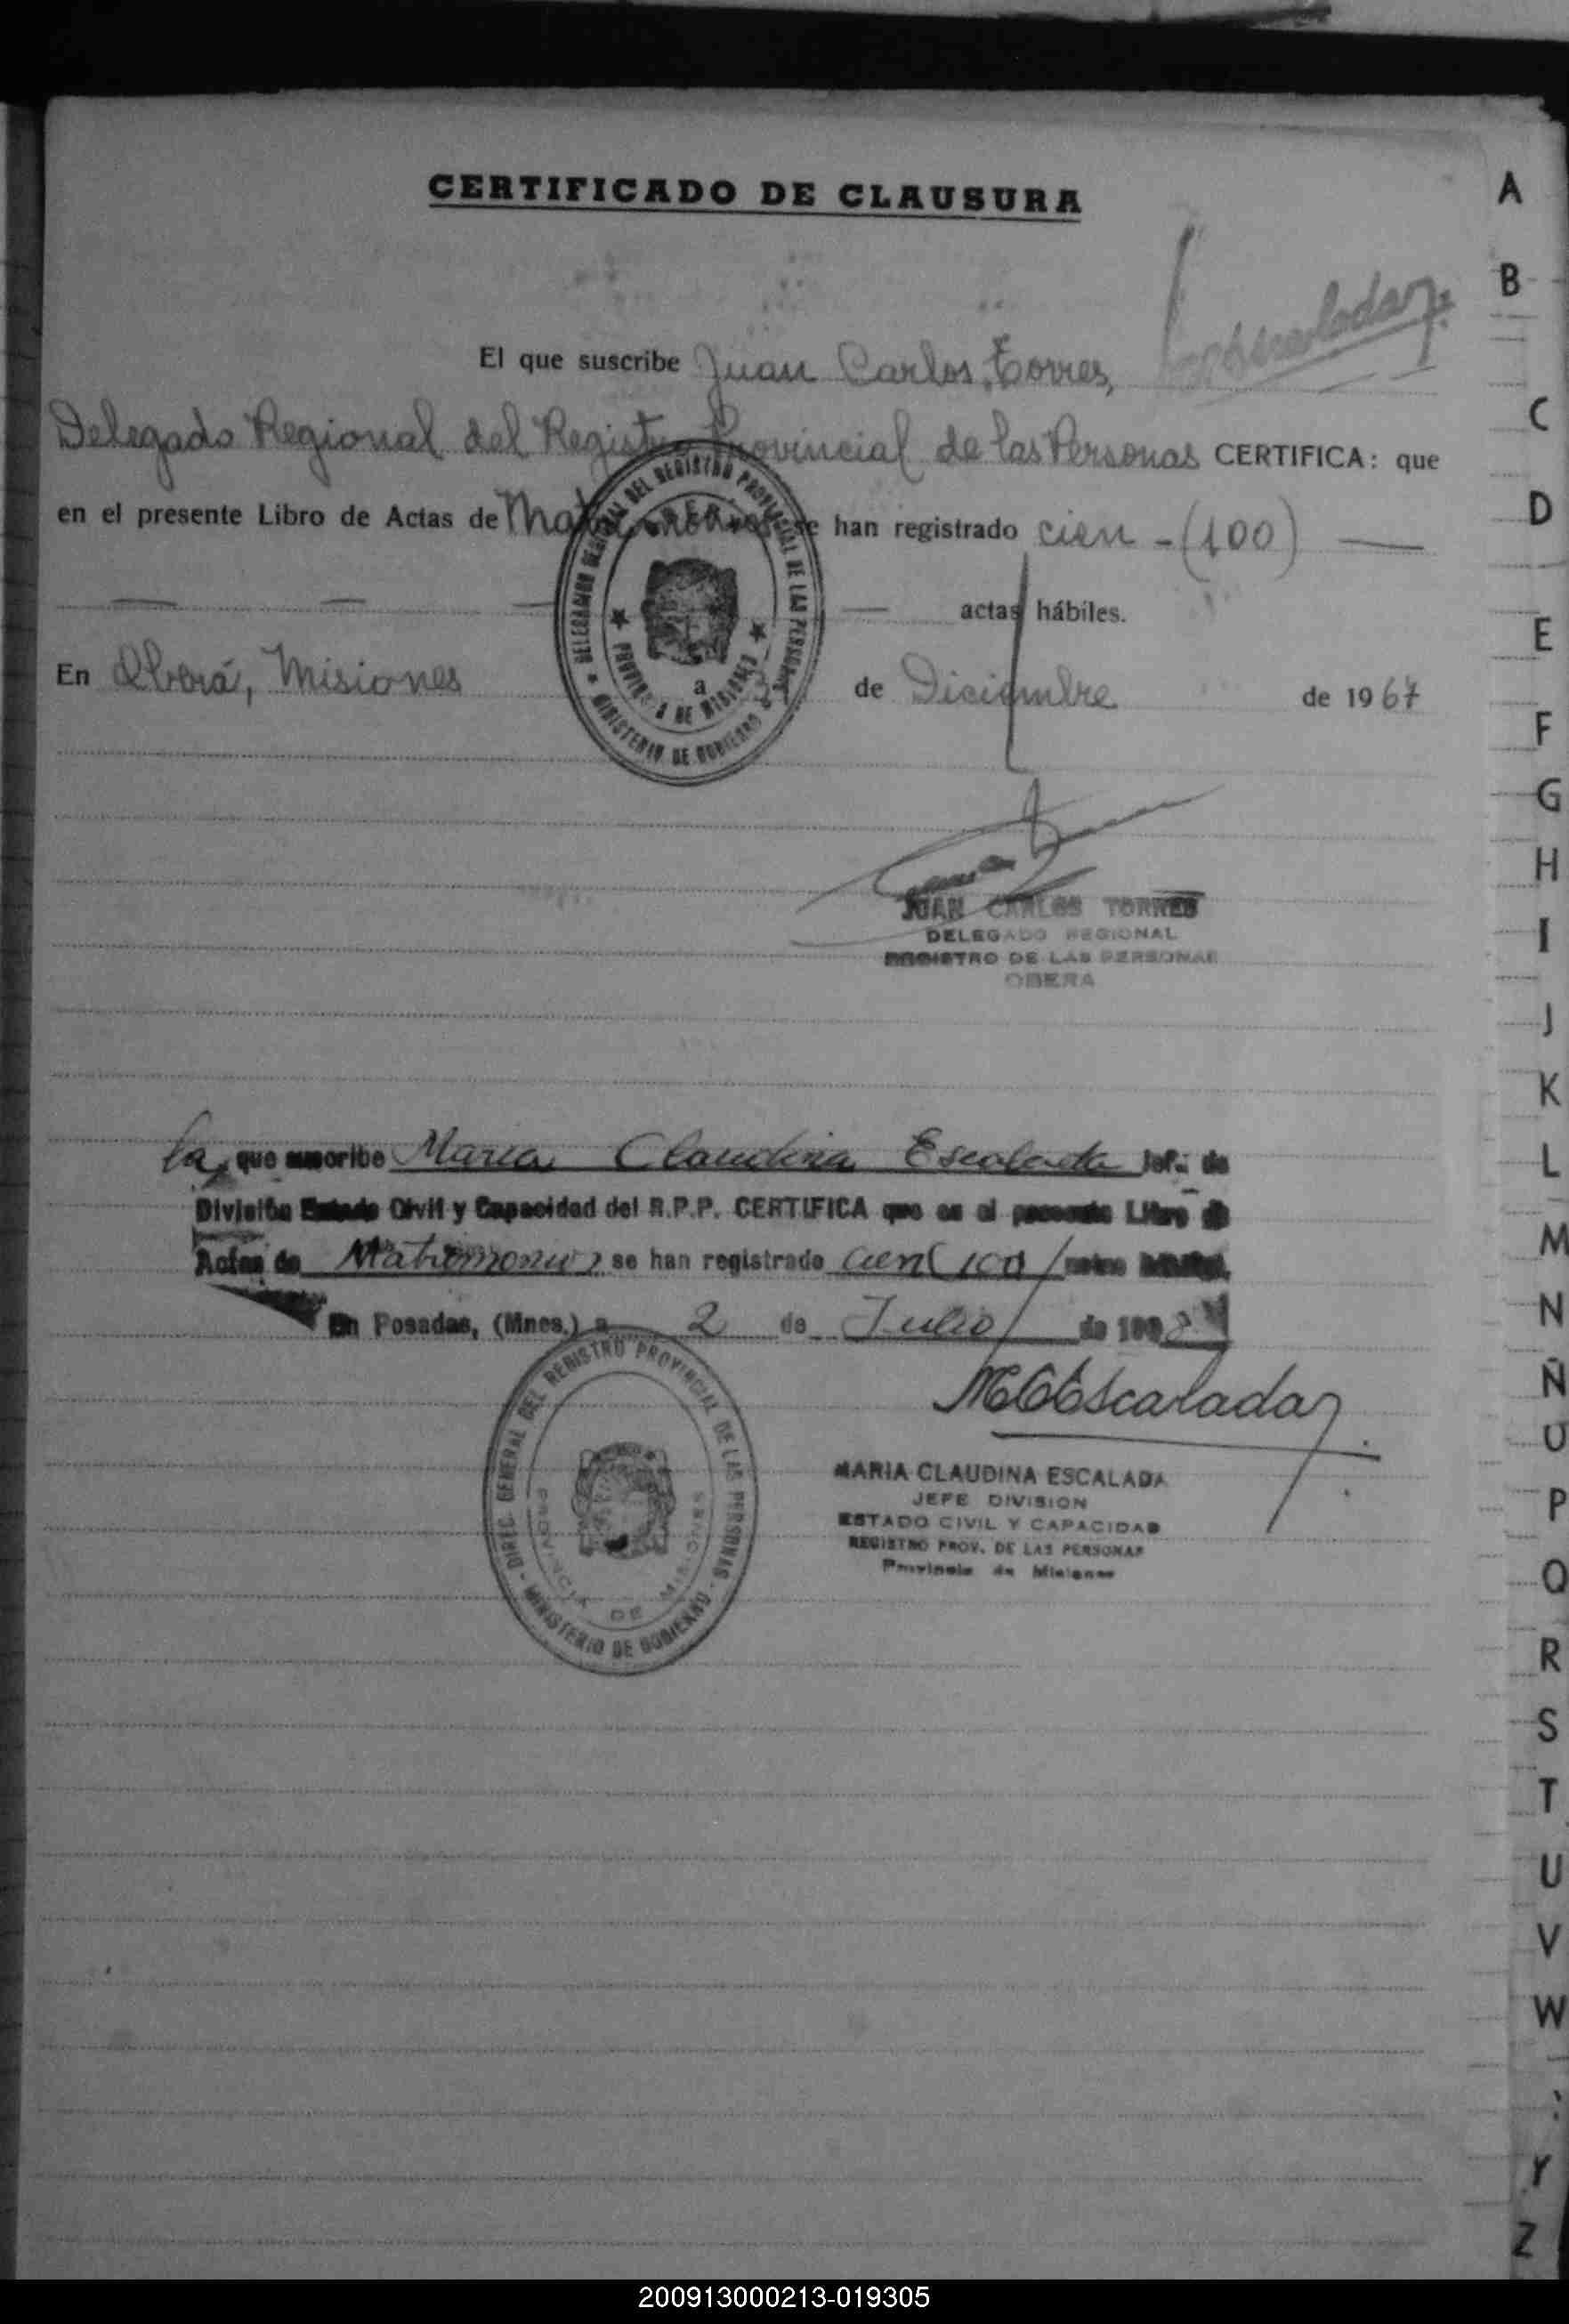 CERTIFICADO DE CLAUSURA
El que suscribe Juan Carlos Torres,
Escalada
Delegado Regional del Registro Provincial de las Personas CERTIFICA: que
en el presente Libro de Actas de Matrimonios se han registrado cien - (100)
actas hábiles.
En Oberá, Misiones a de Diciembre de 1967
DELEGACION REGIONAL DEL REGISTRO PROVINCIAL DE LAS PERSONAS
MINISTERIO DE GOBIERNO
PROVINCIA DE MISIONES
JUAN CARLOS TORRES
DELEGADO REGIONAL
REGISTRO DE LAS PERSONAS
OBERA
la que suscribe Maria Claudina Escalada Jef. de
División Estado Civil y Capacidad del R.P.P. CERTIFICA que en el presente Libro de
Actas de Matrimonios se han registrado cien (100)
En Posadas, (Mnes.) a 2 de Julio de
MCEscalada
DIREC. GENERAL DEL REGISTRO PROVINCIAL DE LAS PERSONAS
MINISTERIO DE GOBIERNO
PROVINCIA DE MISIONES
MARIA CLAUDINA ESCALADA
JEFE DIVISION
ESTADO CIVIL Y CAPACIDAD
REGISTRO PROV. DE LAS PERSONAS
Provincia de Misiones
A
B
C
D
E
F
G
H
I
J
K
L
M
N
Ñ
O
P
Q
R
S
T
U
V
W
Y
Z
200913000213-019305